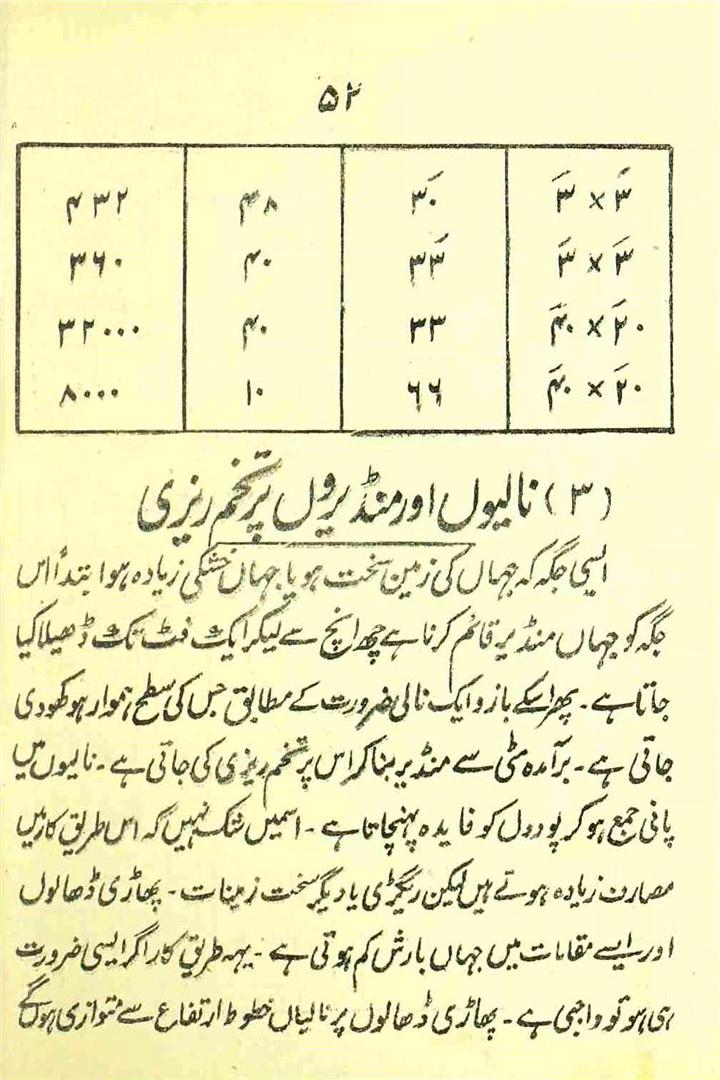 ۵۲
۳َ × ۳َ ۳۰َ ۴۸ ۴۳۲
۳َ × ۳َ ۳۳َ ۴۰ ۳۶۰
۲۰َ × ۴۰َ ۳۳ ۴۰ ۳۲۰۰۰
۲۰َ × ۴۰َ ۶۶ ۱۰ ۸۰۰۰
(۳) نالیوں اور منڈیروں پر تخم ریزی
ایسی جگہ کہ جہاں کی زمین سخت ہو یا جہاں خشکی زیادہ ہو ابتدأً اس
جگہ کو جہاں منڈیر قائم کرنا ہے چھ انچ سے لیکر ایک فٹ تک ڈھیلا کیا
جاتا ہے ۔ پھر اسکے بازو ایک نالی ضرورت کے مطابق جس کی سطح ہموار ہو کھودی
جاتی ہے ۔ برآمدہ مٹی سے منڈیر بنا کر اس پر تخم ریزی کی جاتی ہے ۔ نالیوں میں
پانی جمع ہو کر پودوں کو فایدہ پہنچاتا ہے ۔ اسمیں شک نہیں کہ اس طریق کار میں
مصارف زیادہ ہوتے ہیں لیکن ریگڑی یا دیگر سخت زمینات ۔ پھاڑی ڈھالوں
اور ایسے مقامات میں جہاں بارش کم ہوتی ہے ۔ یہہ طریق کار اگر ایسی ضرورت
ہی ہو تو واجبی ہے ۔ پھاڑی ڈھالوں پر نالیاں خطوط ارتفاع سے متوازی ہوں گے